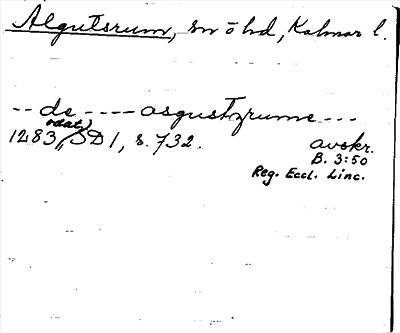 Algutsrum, sn ö hd, Kalmar l.
-- de ---- asgustzrume ---
1283 (odat.) SD 1, s. 732. avskr.
B. 3:50
Reg. Eccl. Linc.